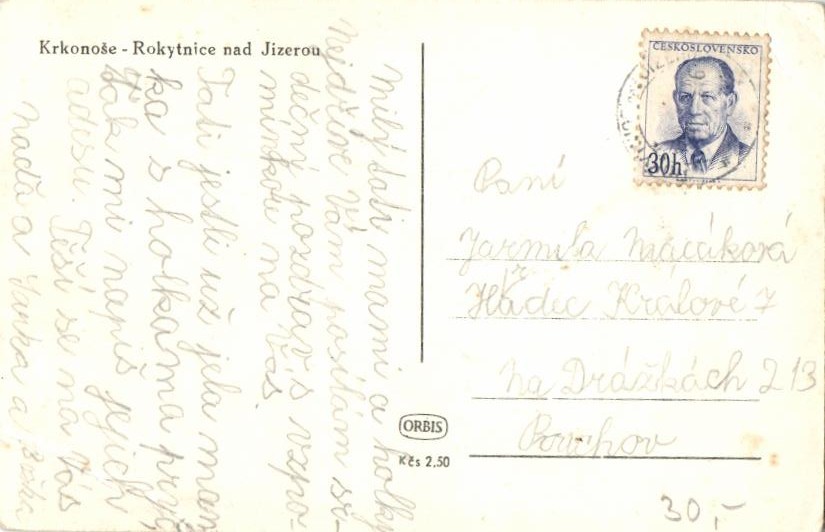 Krkonoše - Rokytnice nad Jizerou
Milý tati mami a holky
Nejdříve Vám posílám sr-
dečný pozdrav s vzpo-
mínkou na Vás.
Tati jestli už jela mam
ka s holkama pryč
tak mi napiš jejich
adesu. Těší se na Vás
Naďa a a
ČESKOSLOVENSKO
30h
Paní
Jarmila Macáková
Hradec Králové 7
Na Drážkách 213
ORBIS
Kčs 2,50
30,-